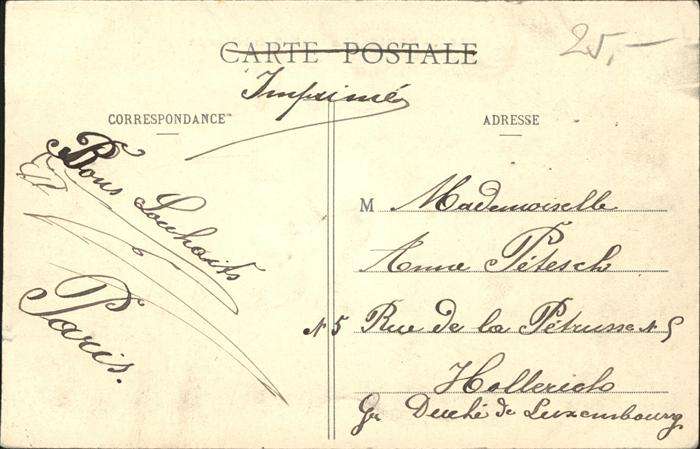 25,-
CARTE POSTALE
Imprimé
CORRESPONDANCE
Bons Souhaits
Paris.
ADRESSE
M Mademoiselle
Anna Pétesch
N 5 Rue de la Pétrusse N 5
Hollerich
Gr Duché de Luxembourg